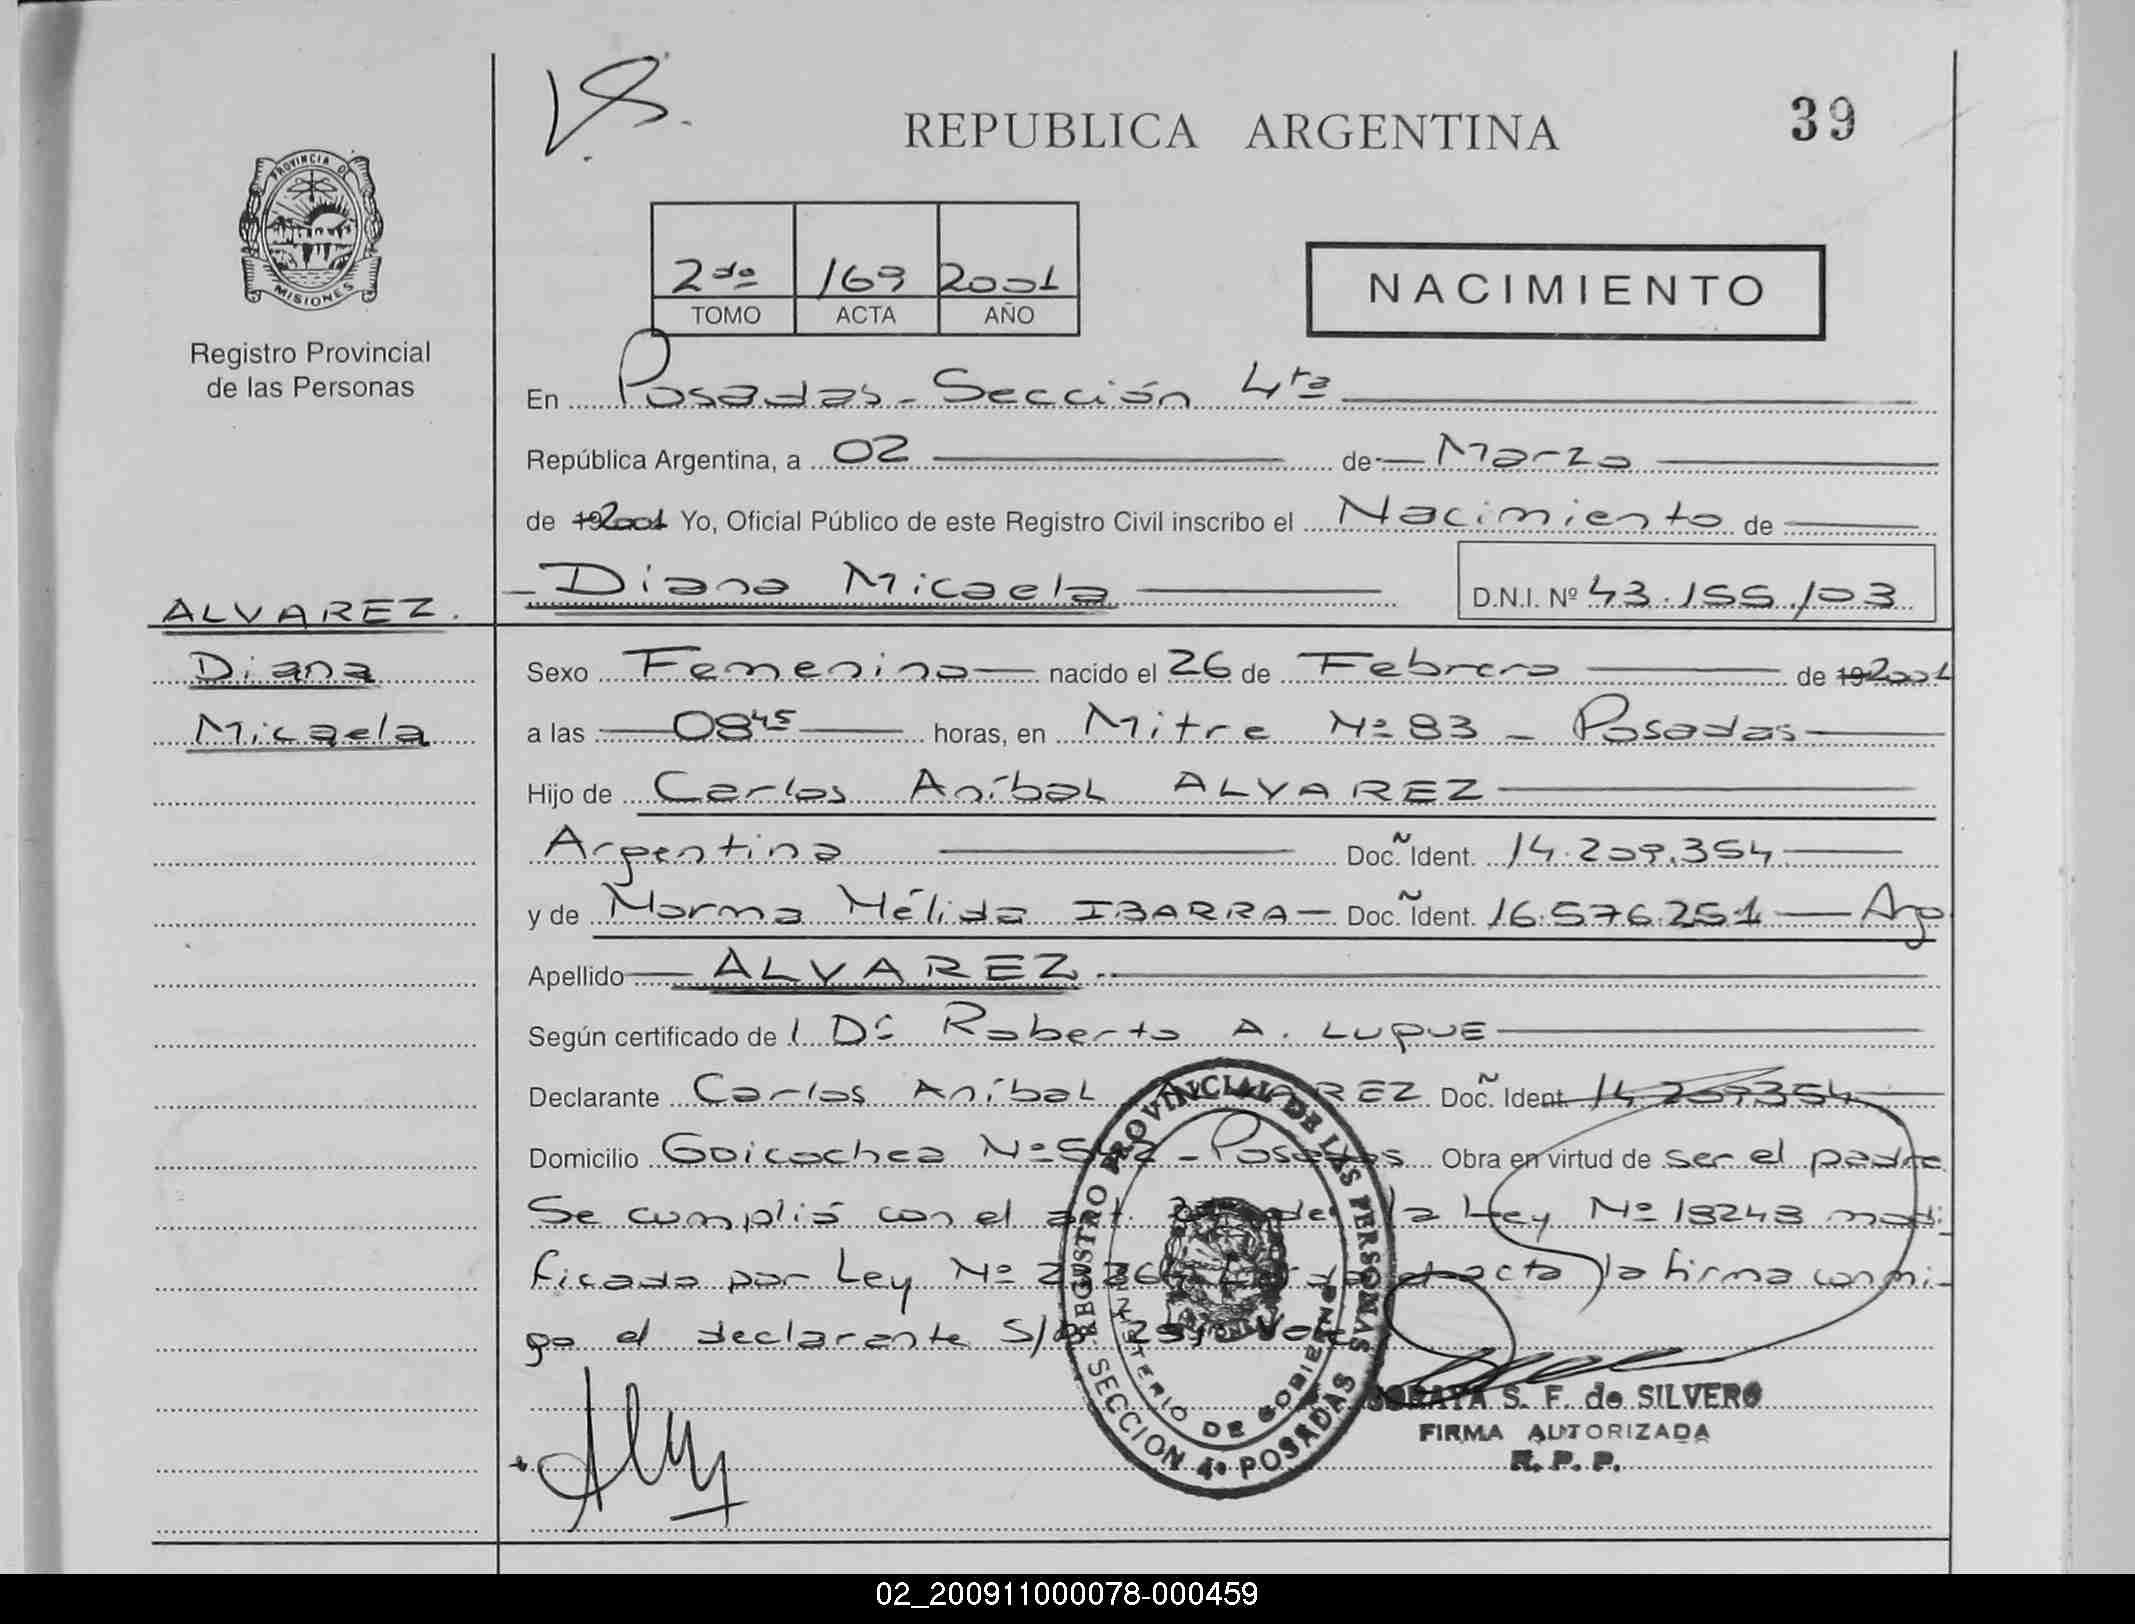 VS.
REPUBLICA ARGENTINA
39
PROVINCIA DE
MISIONES
Registro Provincial
de las Personas
2do 169 2001
TOMO ACTA AÑO
NACIMIENTO
En Posadas - Sección 4ta
República Argentina, a 02 de Marzo
de 192001 Yo, Oficial Público de este Registro Civil inscribo el Nacimiento de
- Diana Micaela
D.N.I. Nº 43.155.103
ALVAREZ.
Diana
Micaela
Sexo Femenino nacido el 26 de Febrero de 192001
a las 0845 horas, en Mitre Nº 83 - Posadas
Hijo de Carlos Aníbal ALVAREZ
Argentina Doc. Ident. 14.209.354
y de Norma Nélida IBARRA - Doc. Ident. 16.576.251 - Arg
Apellido ALVAREZ
Según certificado de / Dr Roberto A. LUQUE
Declarante Carlos Aníbal ALVAREZ Doc. Ident. 14.209.354
Domicilio Goicochea Nº Posadas Obra en virtud de ser el padre
Se cumplió con el art. de la Ley Nº 18248 modi
ficado por Ley Nº acta la firma conmi-
go el declarante
REGISTRO PROVINCIAL DE LAS PERSONAS
MINISTERIO DE GOBIERNO
SECCION 4º POSADAS
SORAYA S. F. de SILVERO
FIRMA AUTORIZADA
R. P. P.
02_200911000078-000459